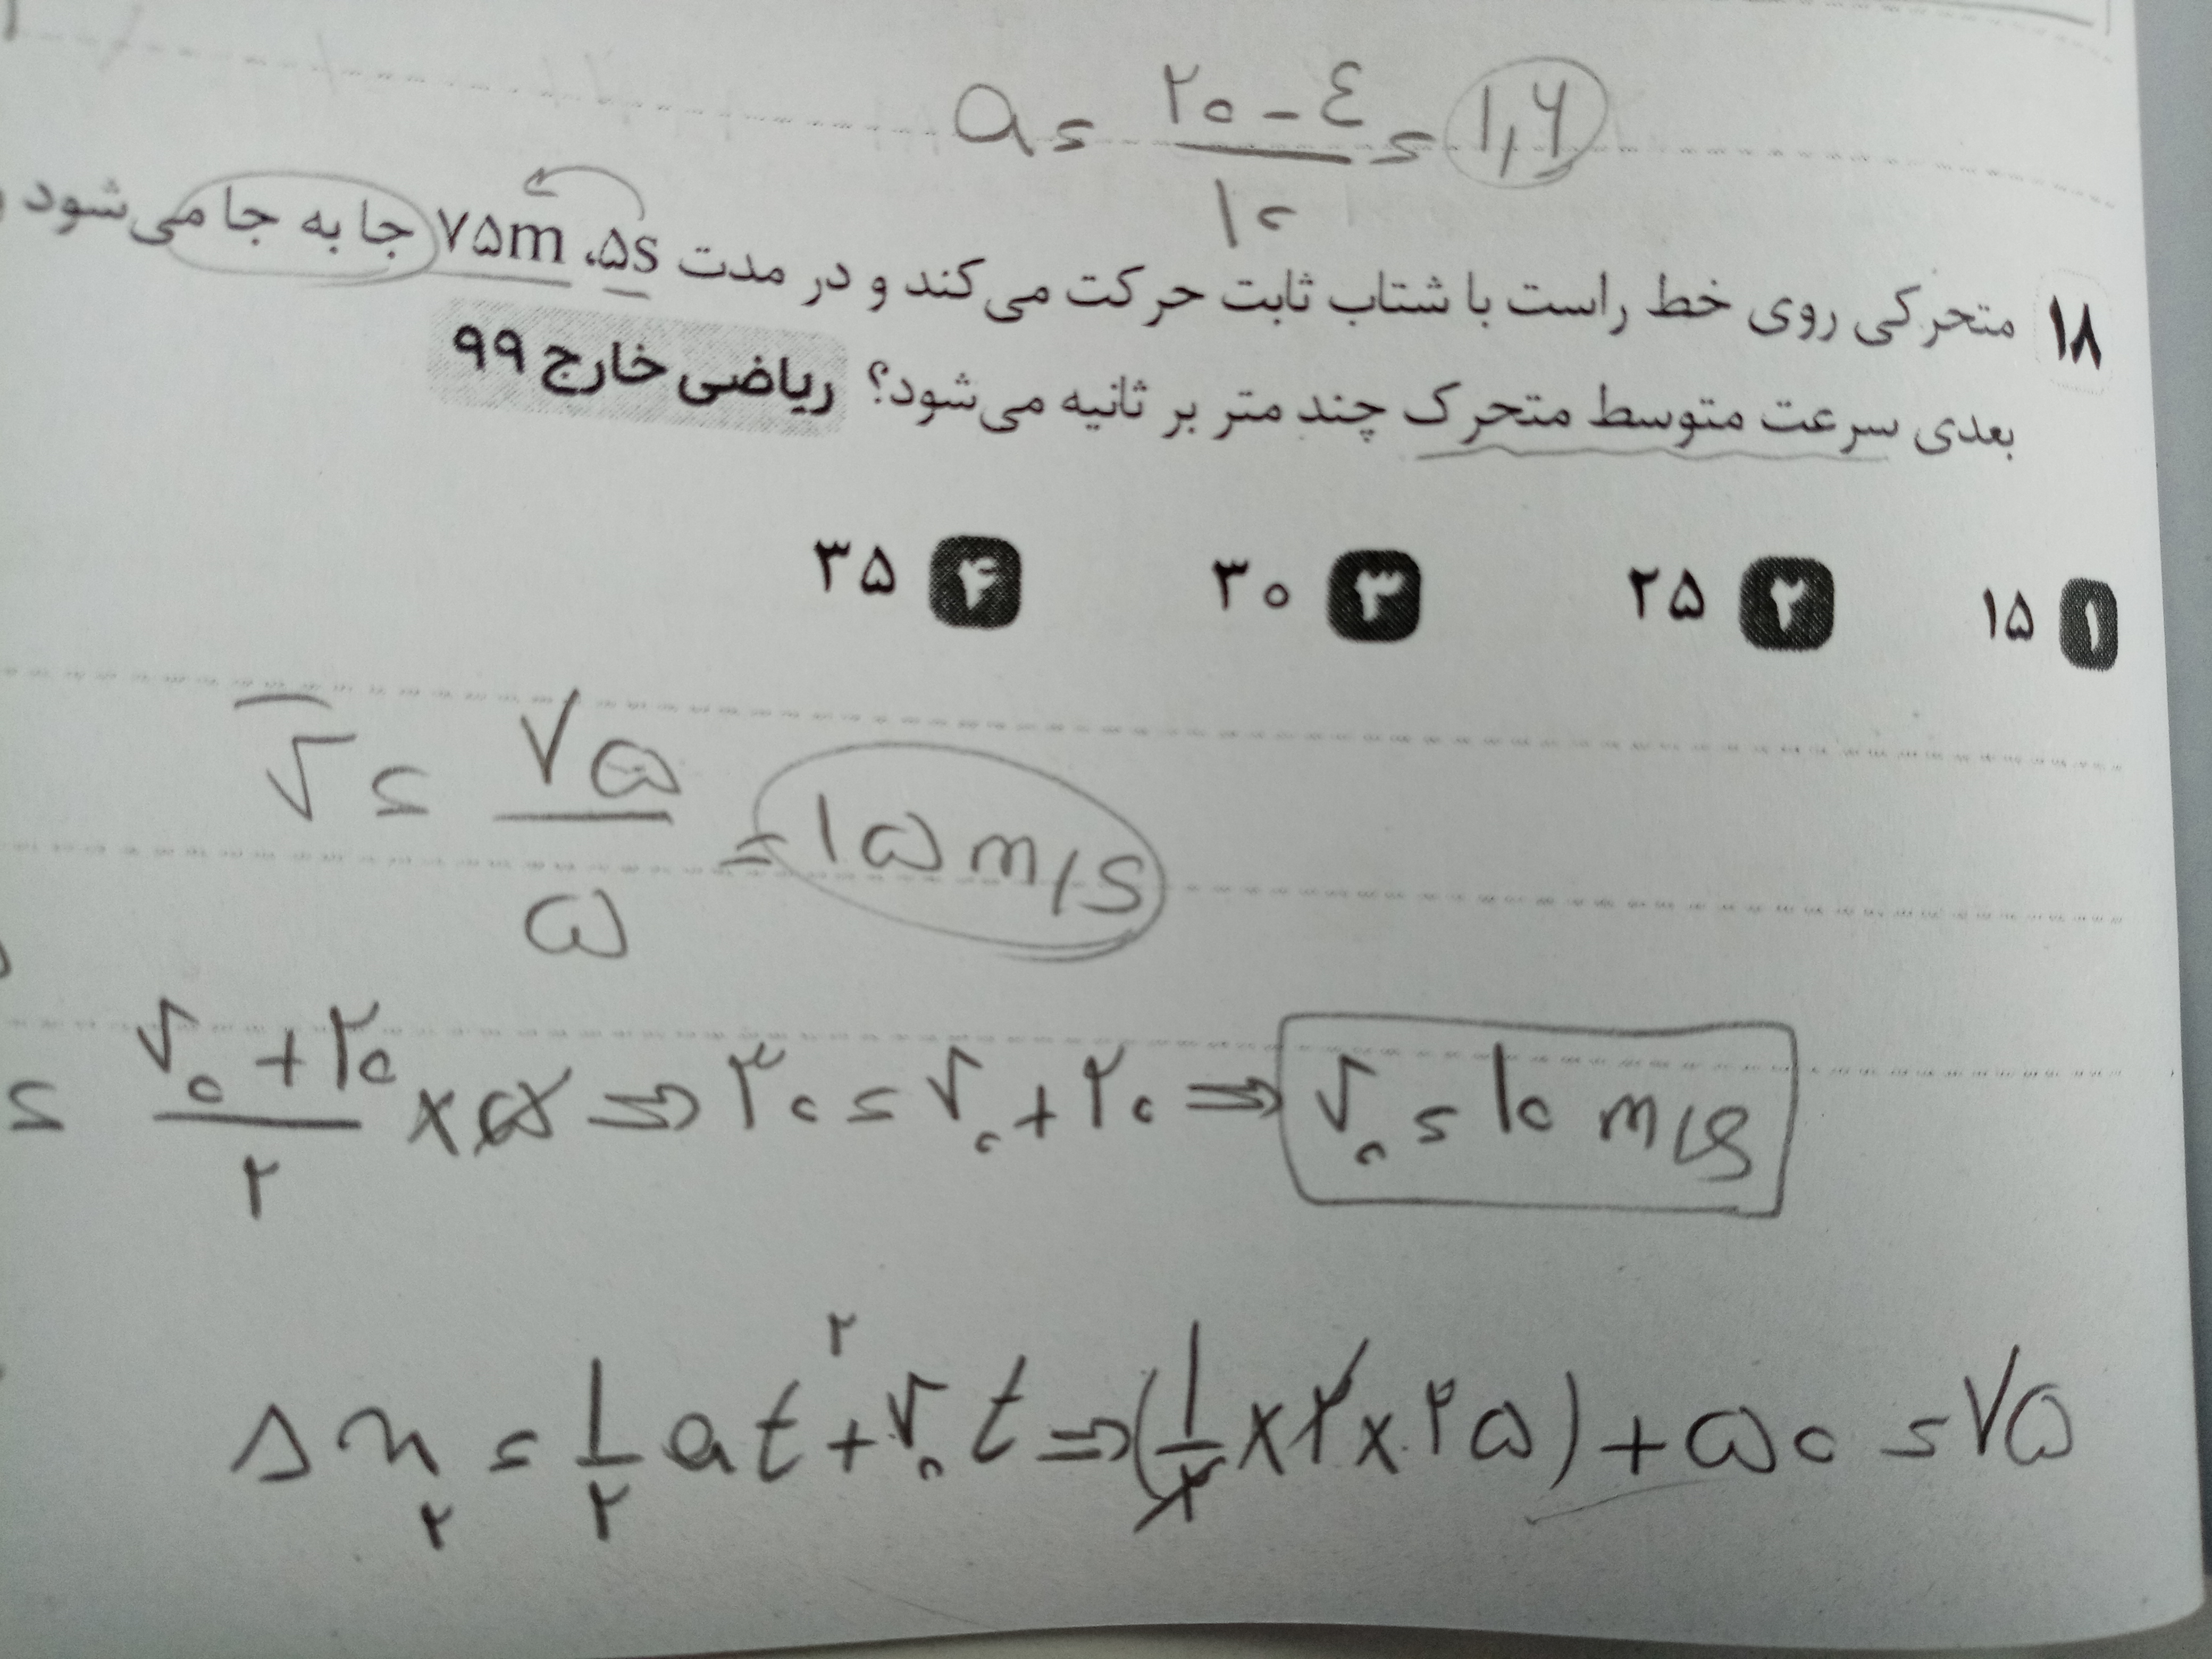 a = ۲۰ - ٤ / ۱۰ = ۱,۶
۱۸ متحرکی روی خط راست با شتاب ثابت حرکت می‌کند و در مدت ۵s، ۷۵m جا به جا می‌شود و
بعدی سرعت متوسط متحرک چند متر بر ثانیه می‌شود؟ ریاضی خارج ۹۹
۱ ۱۵ ۲ ۲۵ ۳ ۳۰ ۴ ۳۵
v̅ = ۷۵ / ۵ = ۱۵ m/s
= v۰ + ۲۰ / ۲ × ۵ ⇒ ۳۰ = v۰ + ۲۰ ⇒ v۰ = ۱۰ m/s
Δx۲ = ۱/۲ at² + v۰t ⇒ (۱/۲ × ۲ × ۲۵) + ۵۰ = ۷۵